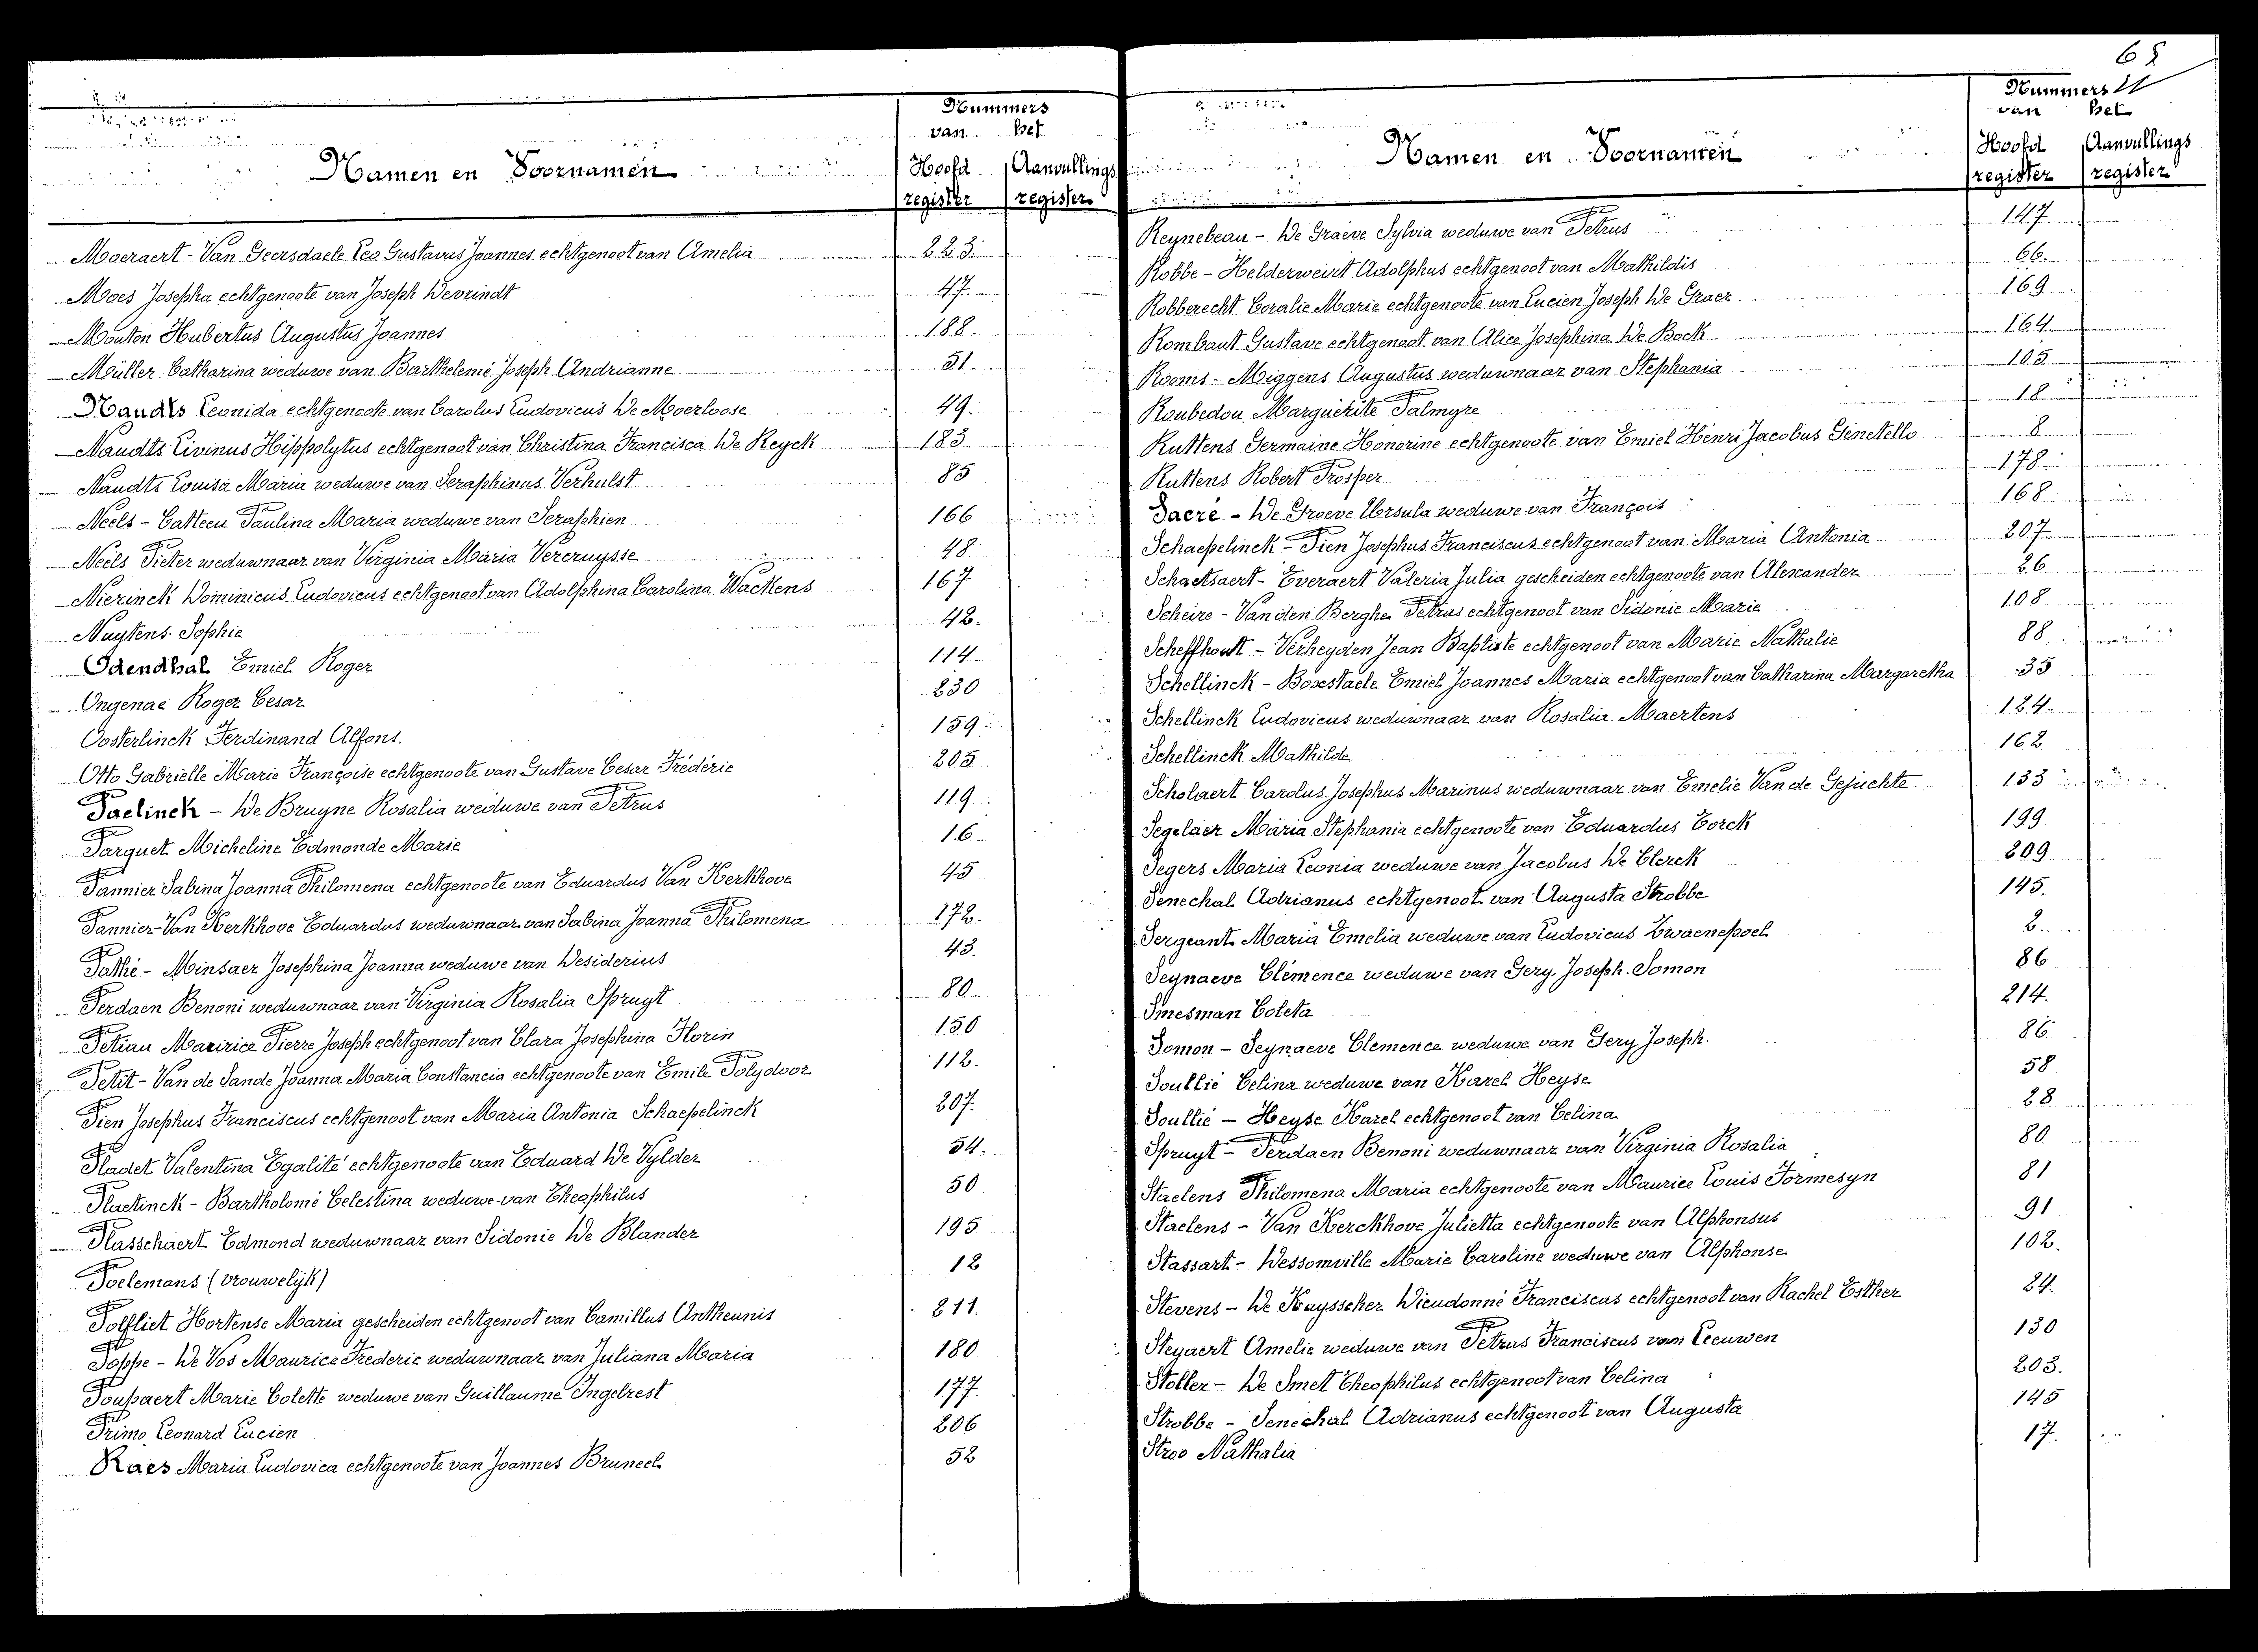 Nummers
van het
Namen en Voornamen
Hoofd register
Aanvullings register
Moeraert - Van Geersdaele Leo Gustavus Joannes echtgenoot van Amelia 223.
Moes Josepha echtgenoote van Joseph Devrindt 47
Mouton Hubertus Augustus Joannes 188.
Müller Catharina weduwe van Barthelemé Joseph Andrianne 51
Naudts Leonida echtgenoote van Carolus Ludovicus De Moerloose 49.
Naudts Livinus Hippolytus echtgenoot van Christina Francisca De Reyck 183
Naudts Louisa Maria weduwe van Seraphinus Verhulst 85
Neels - Catteeu Paulina Maria weduwe van Seraphien 166
Neels Pieter weduwnaar van Virginia Maria Vercruysse 48
Nierinck Dominicus Ludovicus echtgenoot van Adolphina Carolina Wackens 167
Nuytens Sophie 42.
Odendhal Emiel Roger 114.
Ongenae Roger Cesar 230
Oosterlinck Ferdinand Alfons. 159.
Otto Gabrielle Marie Françoise echtgenoote van Gustave Cesar Fréderic 205
Paelinck - De Bruyne Rosalia weduwe van Petrus 119
Parquet Micheline Edmonde Marie 16
Pannier Sabina Joanna Philomena echtgenoote van Eduardus Van Kerkhove 45
Pannier-Van Kerkhove Eduardus weduwnaar van Sabina Joanna Philomena 172.
Pathé - Minsaer Josephina Joanna weduwe van Desiderius 43.
Perdaen Benoni weduwnaar van Virginia Rosalia Spruyt 80.
Petiau Maurice Pierre Joseph echtgenoot van Clara Josephina Florin 150
Petit - Van de Sande Joanna Maria Constancia echtgenoote van Emile Polydoor 112.
Pien Josephus Franciscus echtgenoot van Maria Antonia Schaepelinck 207.
Pladet Valentina Egalité echtgenoote van Eduard De Vylder 54.
Plaetinck - Bartholomé Celestina weduwe van Theophilus 50
Plasschaert Edmond weduwnaar van Sidonie De Blander 195
Poelemans (vrouwelijk) 12
Polfliet Hortense Maria gescheiden echtgenoot van Camillus Antheunis 211.
Poppe - De Vos Maurice Frederic weduwnaar van Juliana Maria 180
Poupaert Marie Colette weduwe van Guillaume Ingelrest 177
Primo Leonard Lucien 206
Raes Maria Ludovica echtgenoote van Joannes Bruneel 52
Nummers
van het
Namen en Voornamen
Hoofd register
Aanvullings register
Reynebeau - De Graeve Sylvia weduwe van Petrus 147
Robbe - Helderweirt Adolphus echtgenoot van Mathildis 66.
Robberecht Coralie Marie echtgenoote van Lucien Joseph De Graer 169
Rombaut Gustave echtgenoot van Alice Josephina De Bock 164
Rooms - Miggens Augustus weduwnaar van Stephania 105
Roubedou Marguerite Palmyre 18
Ruttens Germaine Honorine echtgenoote van Emiel Henri Jacobus Ginetello 8
Ruttens Robert Prosper 178
Sacré - De Groeve Ursula weduwe van François 168
Schaepelinck - Pien Josephus Franciscus echtgenoot van Maria Antonia 207
Schaetsaert - Everaert Valeria Julia gescheiden echtgenoote van Alexander 26
Scheire - Van den Berghe Petrus echtgenoot van Sidonie Marie 108
Scheffhout - Verheyden Jean Baptiste echtgenoot van Marie Nathalie 88
Schellinck - Boxestaele Emiel Joannes Maria echtgenoot van Catharina Margaretha 35
Schellinck Ludovicus weduwnaar van Rosalia Maertens 124.
Schellinck Mathilde 162
Scholaert Carolus Josephus Marinus weduwnaar van Emelie Van de Gejuchte 133
Segelaer Maria Stephania echtgenoote van Eduardus Torck 199
Segers Maria Leonia weduwe van Jacobus De Clerck 209
Senechal Adrianus echtgenoot van Augusta Strobbe 145.
Sergeant Maria Emelia weduwe van Ludovicus Zwaenepoel 2.
Seynaeve Clémence weduwe van Gery Joseph Somon 86
Smesman Coleta 214.
Somon - Seynaeve Clemence weduwe van Gery Joseph. 86
Soullié Celina weduwe van Karel Heyse 58
Soullié - Heyse Karel echtgenoot van Celina 28
Spruyt - Perdaen Benoni weduwnaar van Virginia Rosalia 80
Staelens Philomena Maria echtgenoote van Maurice Louis Formesyn 81
Staelens - Van Kerckhove Julietta echtgenoote van Alphonsus 91
Stassart - Dessomville Marie Caroline weduwe van Alphonse 102.
Stevens - De Kaysscher Dieudonné Franciscus echtgenoot van Rachel Esther 24.
Steyaert Amelie weduwe van Petrus Franciscus van Leeuwen 130
Stoller - De Smet Theophilus echtgenoot van Celina 203.
Strobbe - Senechal Adrianus echtgenoot van Augusta 145
Stroo Nathalia 17.